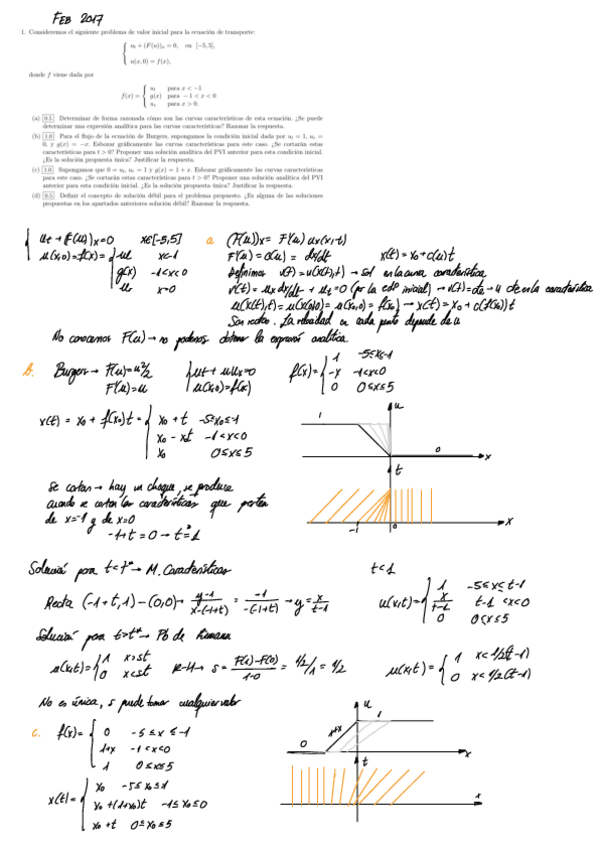 FEB 2017
1. Consideremos el siguiente problema de valor inicial para la ecuación de transporte:
{ u_t + (F(u))_x = 0, en [−5, 5],
u(x, 0) = f(x),
donde f viene dada por
f(x) = { u_l para x < −1
g(x) para − 1 < x < 0
u_r para x > 0.
(a) [0.5] Determinar de forma razonada cómo son las curvas características de esta ecuación. ¿Se puede
determinar una expresión analítica para las curvas características? Razonar la respuesta.
(b) [1.0] Para el flujo de la ecuación de Burgers, supongamos la condición inicial dada por u_l = 1, u_r =
0, y g(x) = −x. Esbozar gráficamente las curvas características para este caso. ¿Se cortarán estas
características para t > 0? Proponer una solución analítica del PVI anterior para esta condición inicial.
¿Es la solución propuesta única? Justificar la respuesta.
(c) [1.0] Supongamos que 0 = u_l, u_r = 1 y g(x) = 1 + x. Esbozar gráficamente las curvas características
para este caso. ¿Se cortarán estas características para t > 0? Proponer una solución analítica del PVI
anterior para esta condición inicial. ¿Es la solución propuesta única? Justificar la respuesta.
(d) [0.5] Definir el concepto de solución débil para el problema propuesto. ¿Es alguna de las soluciones
propuestas en los apartados anteriores solución débil? Razonar la respuesta.
{ u_t + (F(u))_x = 0 x∈[-5,5] a (F(u))_x = F'(u) u_x(x,t)
u(x,0) = f(x) = { u_l x<-1 F'(u) = c(u) = dx/dt x(t) = x_0 + c(u)t
g(x) -1<x<0 Definimos v(t) = u(x(t),t) → sol en la curva característica
u_r x>0 v'(t) = u_x dx/dt + u_t = 0 (por la edp inicial) → v(t) = cte → u cte en la característica
u(x(t),t) = u(x(0),0) = u(x_0,0) = f(x_0) → x(t) = x_0 + c(f(x_0))t
Son rectas. La velocidad en cada punto depende de u
No conocemos F(u) → no podemos obtener la expresión analítica.
b. Burgers → F(u) = u²/2 { u_t + u u_x = 0 f(x) = { 1 -5≤x≤-1
F'(u) = u u(x,0) = f(x) -x -1<x<0
0 0≤x≤5
x(t) = x_0 + f(x_0)t = { x_0 + t -5≤x_0≤-1
x_0 - x_0t -1<x<0
x_0 0≤x≤5
u
1
0
x
t
-1 0 x
Se cortan → hay un choque, se produce
cuando se cortan las características que parten
de x=-1 y de x=0
-1+t = 0 → t* = 1
Solución para t<t* → M. Características t<1
Recta (-1+t,1) - (0,0) → y-1 / x-(-1+t) = -1 / -(-1+t) → y = x/t-1 u(x,t) = { 1 -5≤x≤t-1
x/t-1 t-1<x<0
0 0≤x≤5
Solución para t>t* → Pb de Riemann
u(x,t) = { 1 x>st R-H → s = F(1)-F(0) / 1-0 = 1/2 / 1 = 1/2 u(x,t) = { 1 x<1/2(t-1)
0 x<st 0 x<1/2(t-1)
No es única, s puede tomar cualquier valor
c. f(x) = { 0 -5≤x≤-1
1+x -1<x<0
1 0≤x≤5
u
1+x 1
0
x
t
x
x(t) = { x_0 -5≤x_0≤1
x_0 + (1+x_0)t -1≤x_0≤0
x_0 + t 0≤x_0≤5